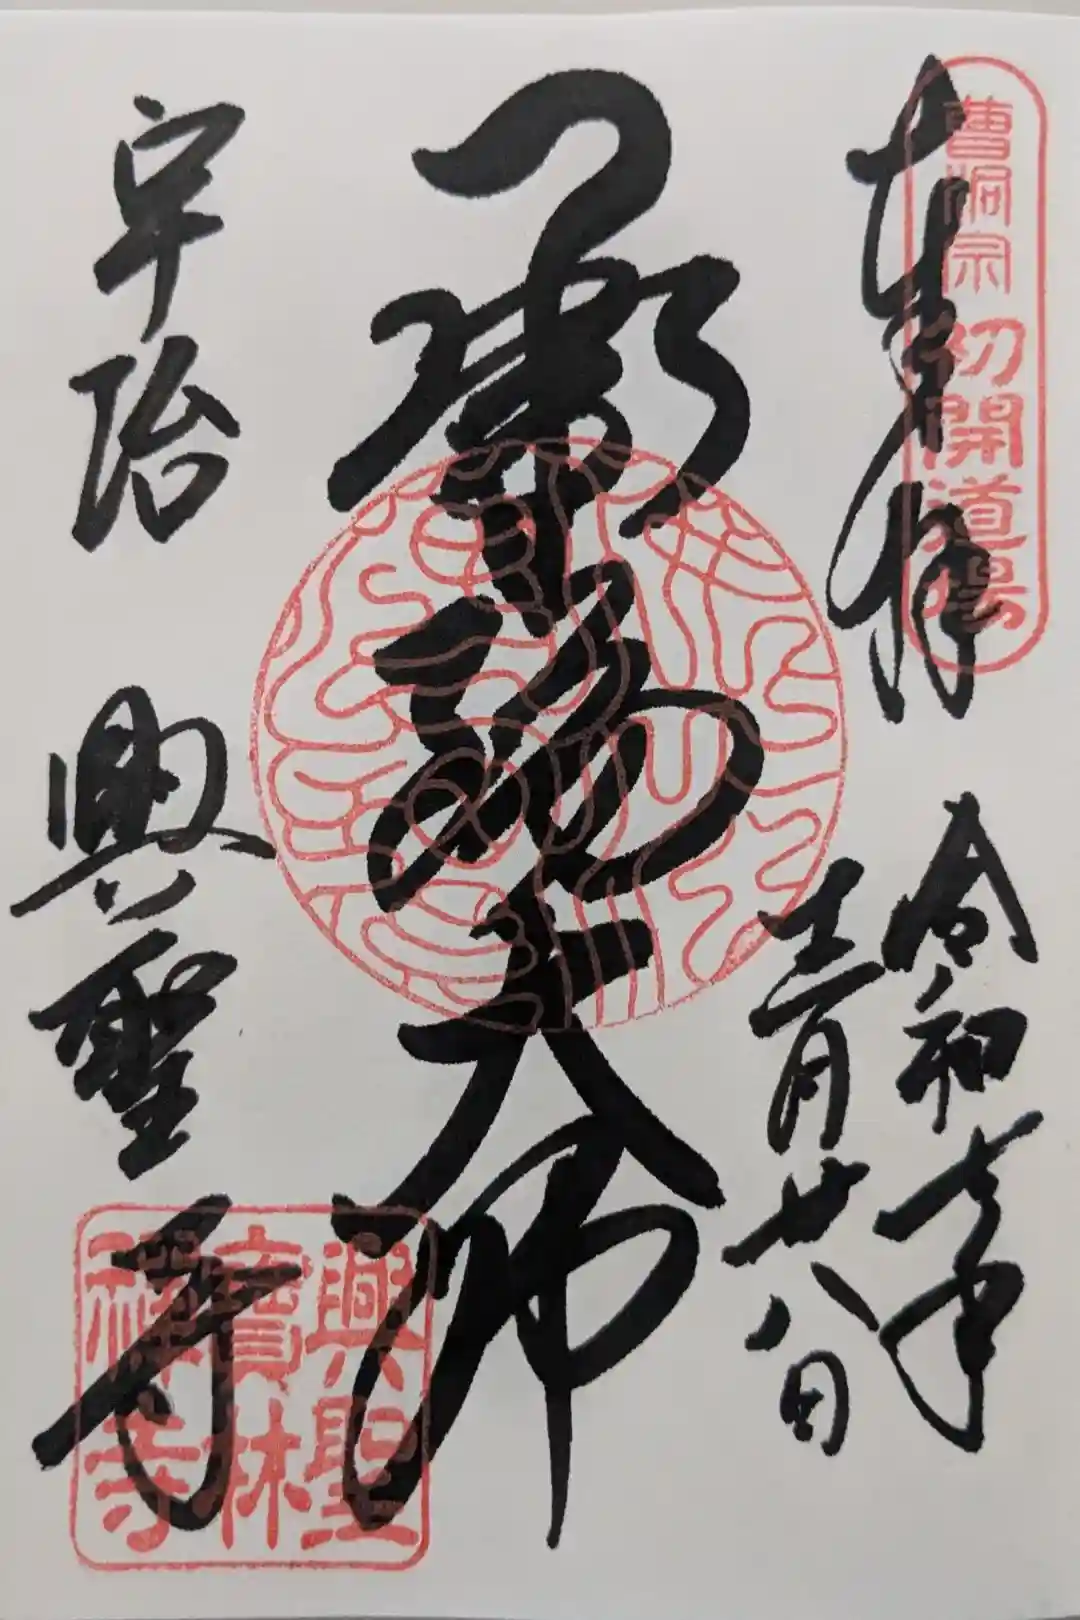 曹洞宗 初開道場
奉拝
令和 年
十二月廿八日
承陽大師
宇治 興聖寺
興聖
寶林
禅寺